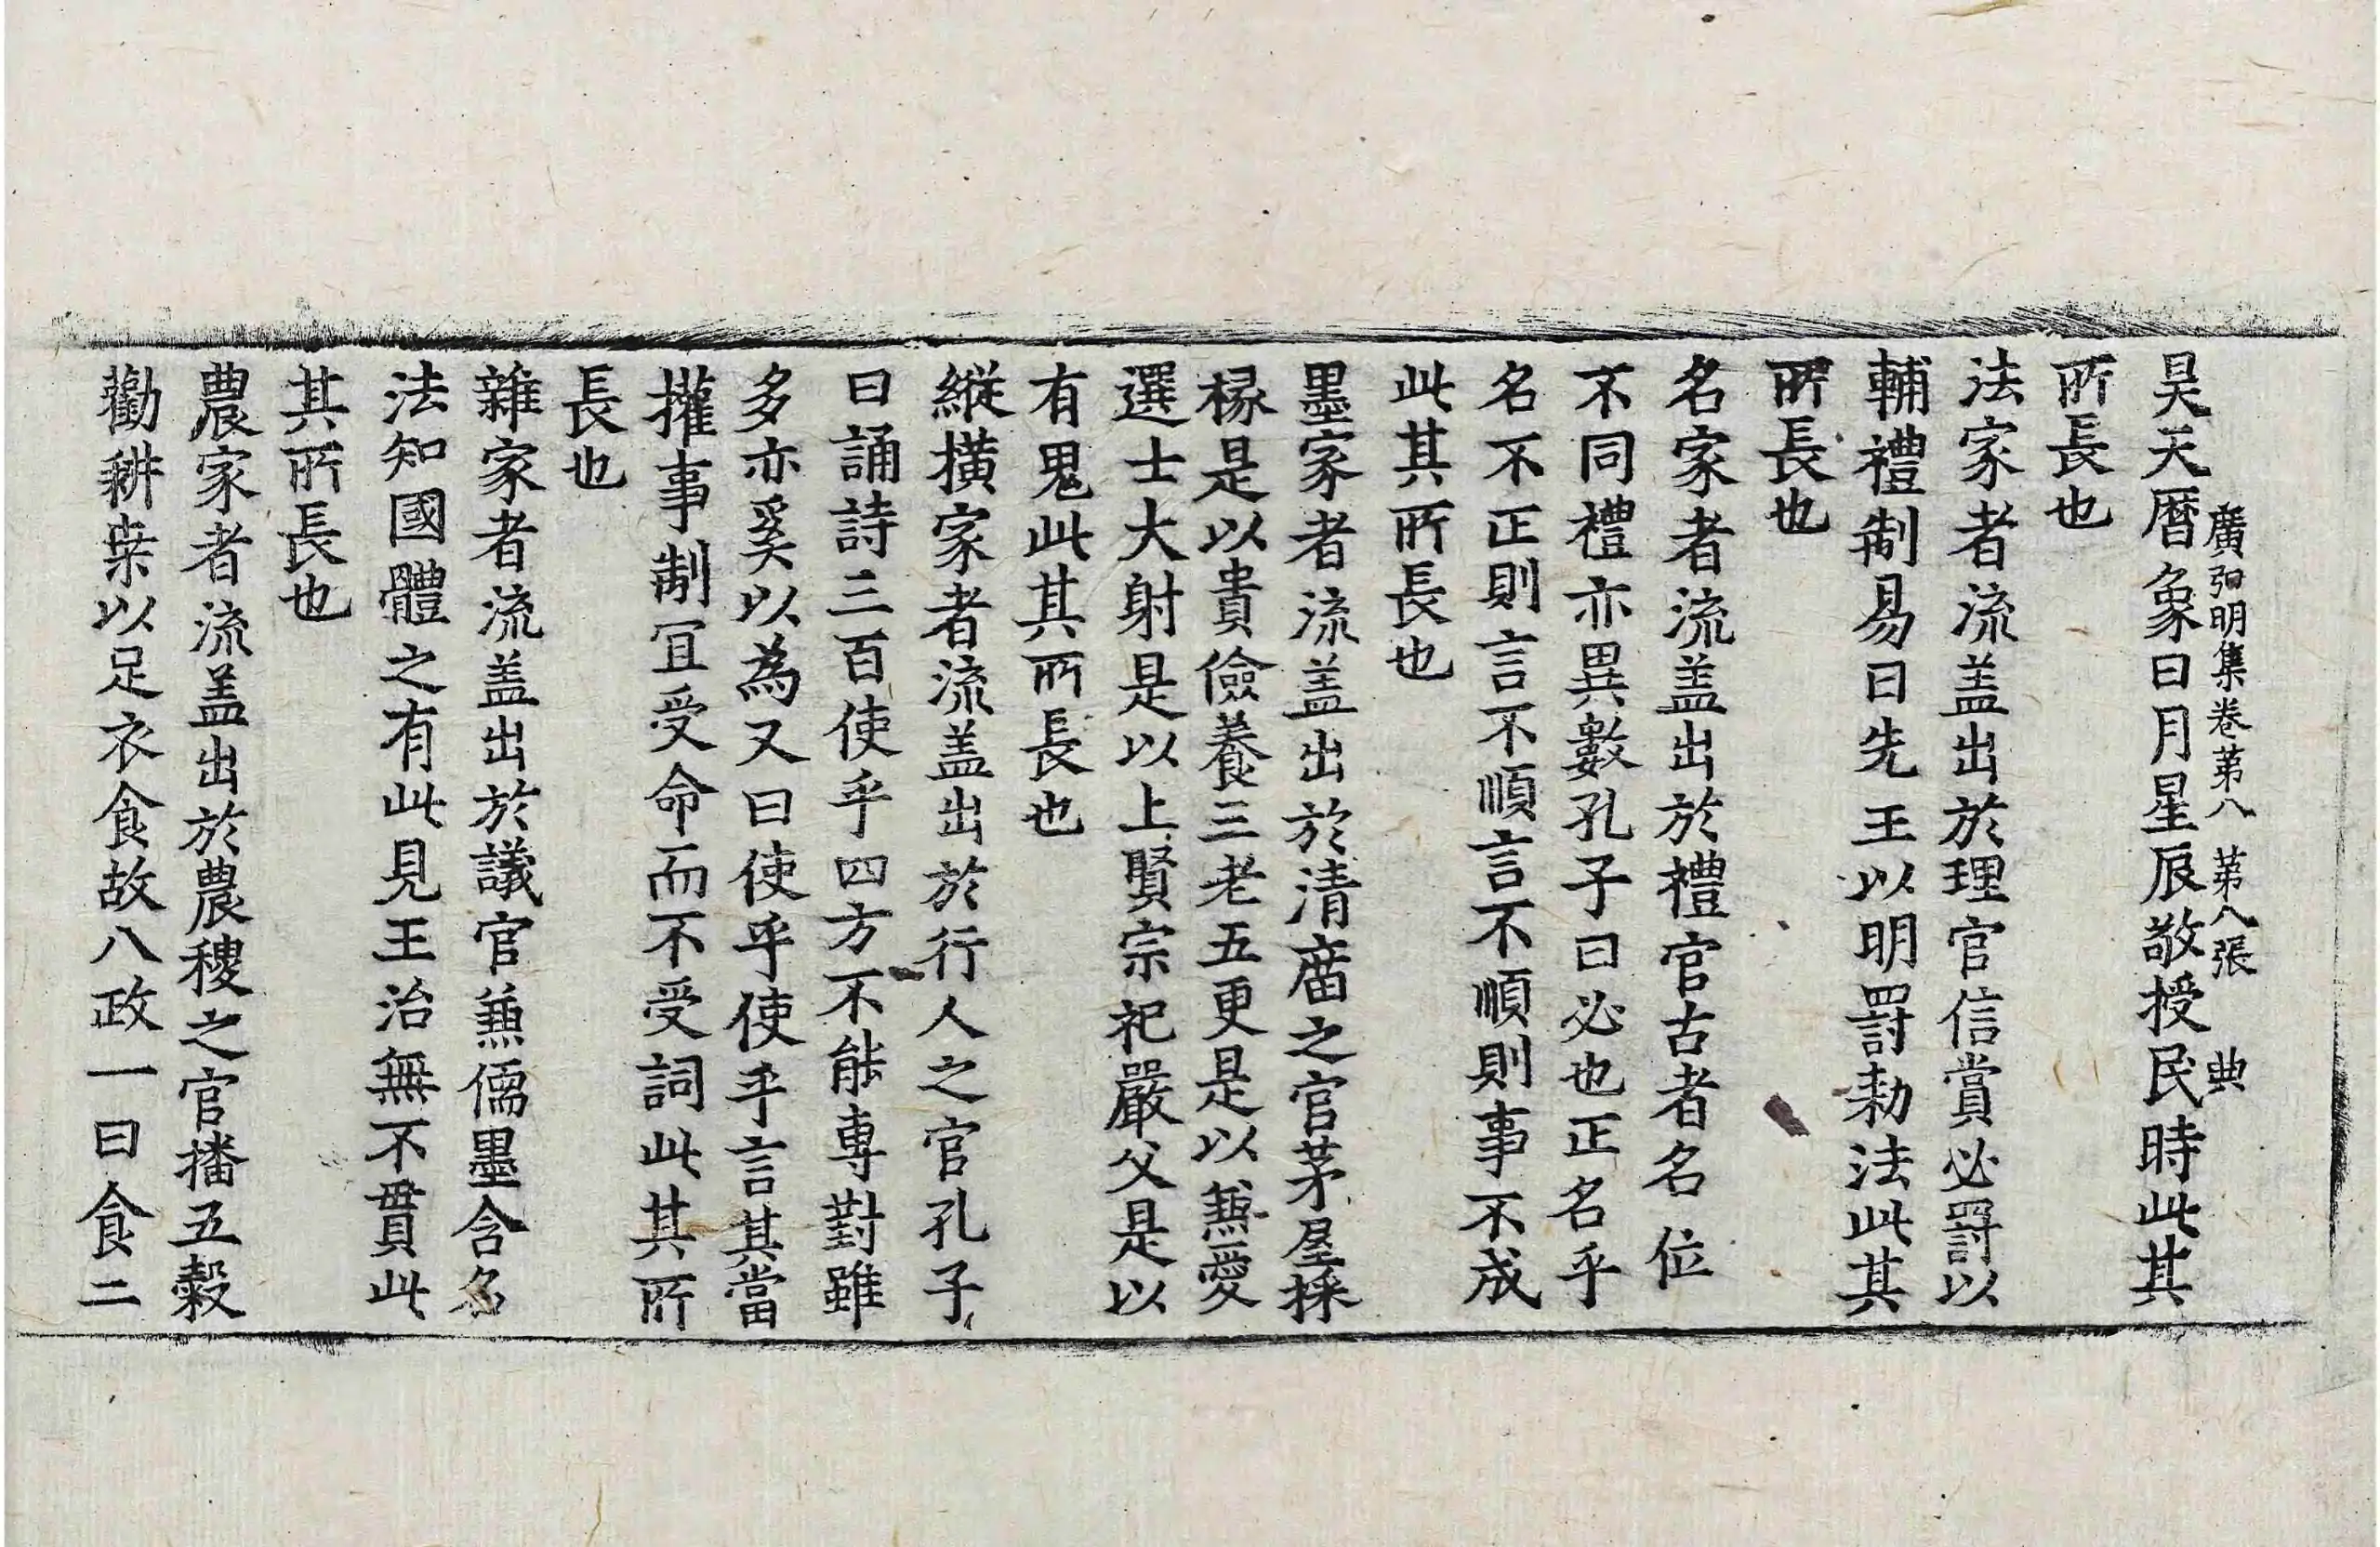 廣弘明集卷第八 第八張 典
昊天曆象日月星辰敬授民時此其
所長也
法家者流盖出於理官信賞必罸以
輔禮制易曰先王以明罸勑法此其
所長也
名家者流盖出於禮官古者名位
不同禮亦異數孔子曰必也正名乎
名不正則言不順言不順則事不成
此其所長也
墨家者流盖出於清庿之官茅屋採
椽是以貴儉養三老五更是以兼愛
選士大射是以上賢宗祀嚴父是以
有鬼此其所長也
縱橫家者流盖出於行人之官孔子
曰誦詩三百使乎四方不能專對雖
多亦奚以為又曰使乎使乎言其當
權事制冝受命而不受詞此其所
長也
雜家者流盖出於議官兼儒墨含名
法知國體之有此見王治無不貫此
其所長也
農家者流盖出於農稷之官播五穀
勸耕桒以足衣食故八政一曰食二